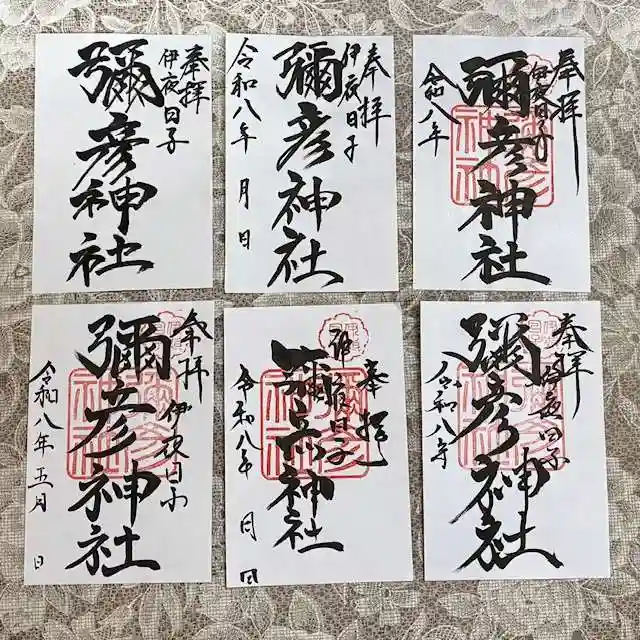 奉拝
伊夜日子
彌彦神社
奉拝
伊夜日子
彌彦神社
令和八年 月 日
奉拝
伊夜日子
彌彦神社
令和八年
奉拝
伊夜日子
彌彦神社
令和八年五月 日
奉拝
日子
彌彦神社
令和八年 月 日
奉拝
伊夜日子
彌彦神社
令和八年